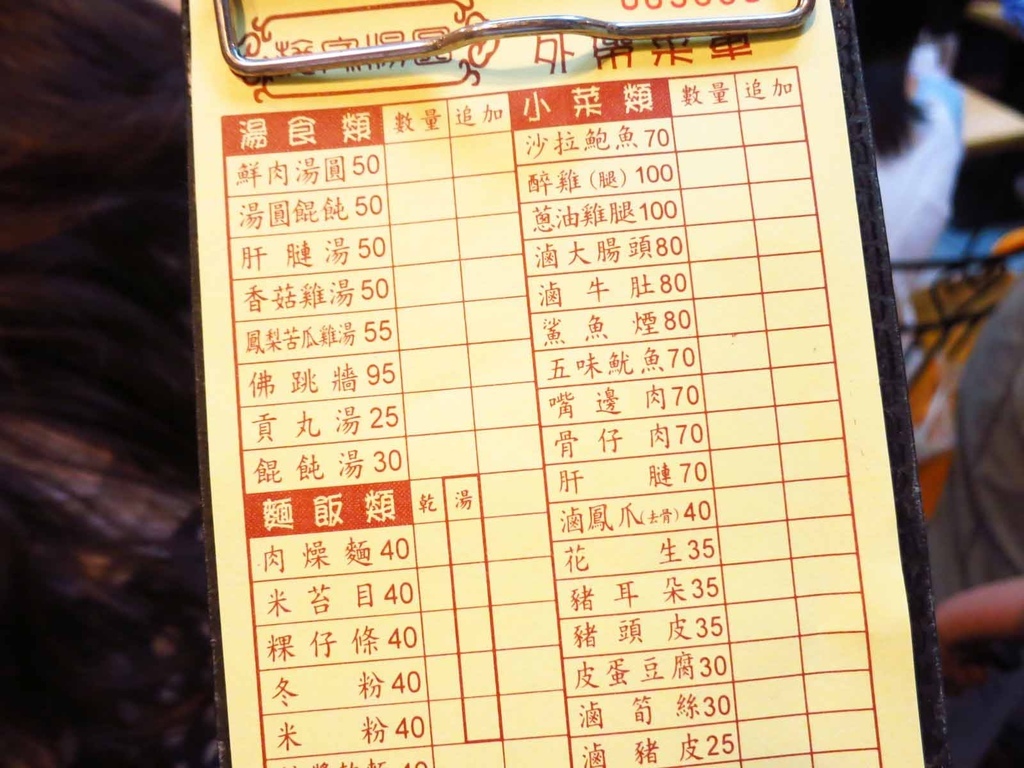 外帶菜單
湯食類 數量 追加
鮮肉湯圓 50
湯圓餛飩 50
肝膁湯 50
香菇雞湯 50
鳳梨苦瓜雞湯 55
佛跳牆 95
貢丸湯 25
餛飩湯 30
麵飯類 乾 湯
肉燥麵 40
米苔目 40
粿仔條 40
冬粉 40
米粉 40
小菜類 數量 追加
沙拉鮑魚 70
醉雞(腿) 100
蔥油雞腿 100
滷大腸頭 80
滷牛肚 80
鯊魚煙 80
五味魷魚 70
嘴邊肉 70
骨仔肉 70
肝膁 70
滷鳳爪(去骨) 40
花生 35
豬耳朵 35
豬頭皮 35
皮蛋豆腐 30
滷筍絲 30
滷豬皮 25